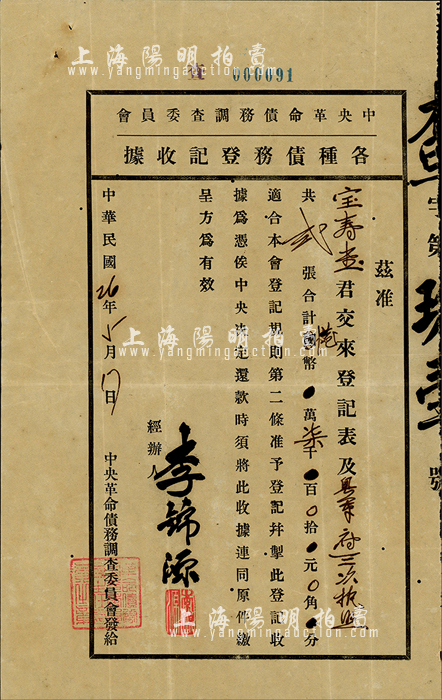 上海陽明拍賣
www.yangmingauction.com
查 000091
中央革命債務調查委員會
各種債務登記收據
茲准
宝寿堂君交來登記表及
共 弍 張合計 港 幣 0 萬 柒 千 0 百 0 拾 0 元 0 角 0 分
適合本會登記規則第二條准予登記幷掣此登記收
據為憑俟中央決定還款時須將此收據連同原件繳
呈方為有效
經辦人 李錦源
中華民國 26 年 5 月 17 日 中央革命債務調查委員會發給
字第
號
上海陽明拍賣
www.yangmingauction.com
上海陽明拍賣
www.yangmingauction.com